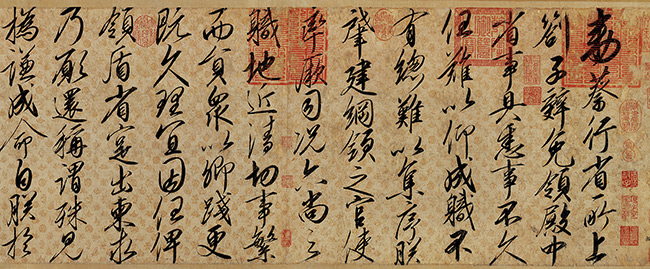 敕蔡行省所上
劄子辭免領殿中
省事具悉事不久
任難以仰成職不
有總難以集序朕
肇建綱領之官使
率厥司況六尚之
職地近清切事繁
而員衆以卿踐更
既久理宜因任俾
領盾省寔出柬求
乃願還稱謂殊見
撝謙成命自朕於